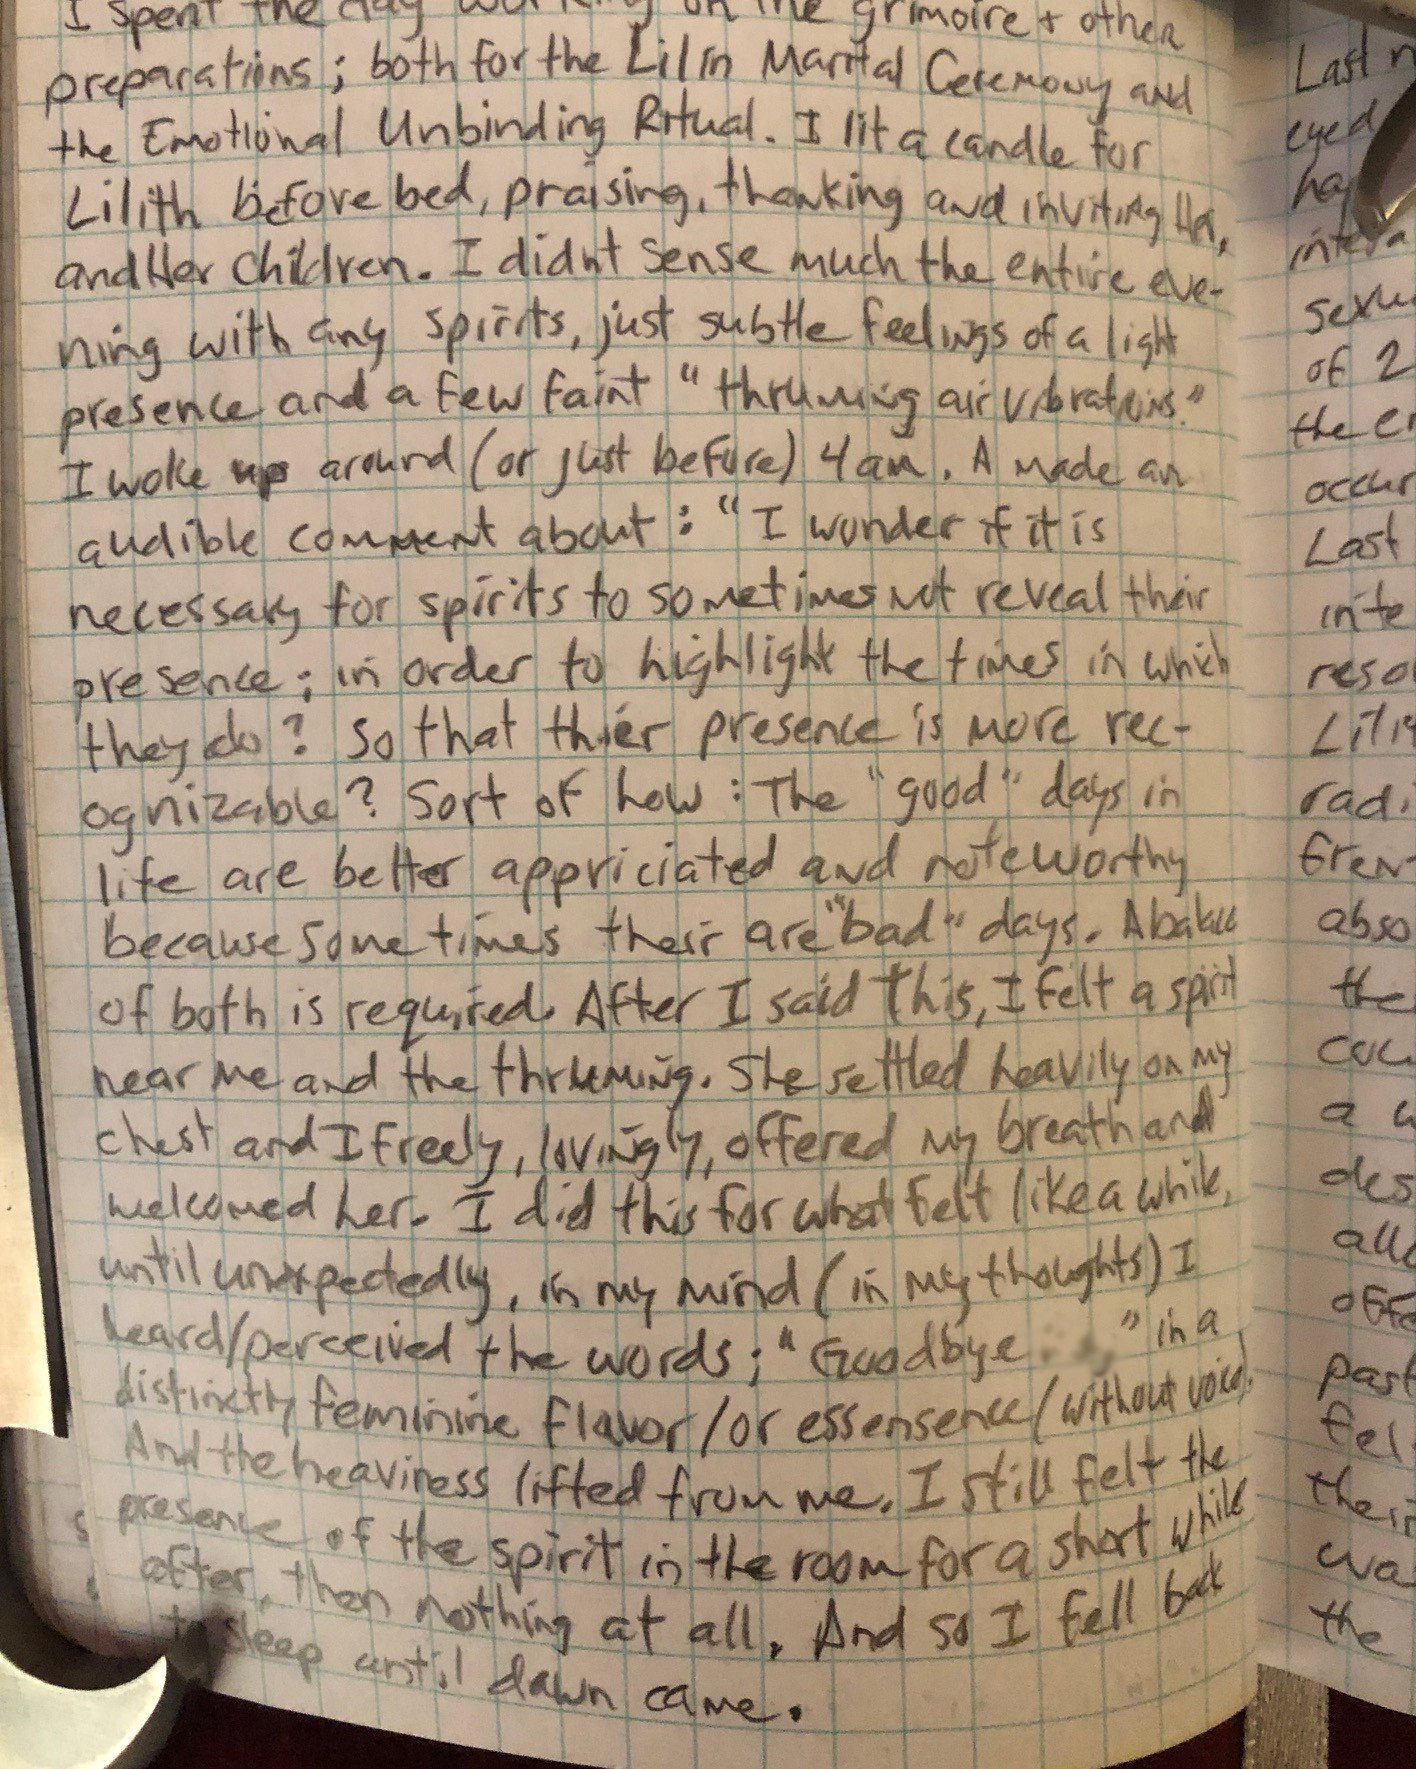 I spent the day working on the grimoire + other
preparations; both for the Lilin Marital Ceremony and
the Emotional Unbinding Ritual. I lit a candle for
Lilith before bed, praising, thanking and inviting Her,
and Her Children. I didnt sense much the entire eve-
ning with any spirits, just subtle feelings of a light
presence and a few faint "thruming air vibrations."
I woke up around (or just before) 4am. A made an
audible comment about: "I wonder if it is
necessary for spirits to sometimes not reveal their
presence; in order to highlight the times in which
they do? So that thier presence is more rec-
ognizable? Sort of how: The "good" days in
life are better appriciated and noteworthy
because sometimes their are "bad" days. A balace
of both is required. After I said this, I felt a spirit
near me and the thruming. She settled heavily on my
chest and I freely, lovingly, offered my breath and
welcomed her. I did this for what felt like a while,
until unexpectedly, in my mind (in my thoughts) I
heard/perceived the words; "Goodbye " in a
distinctly feminine flavor/or essensence (without voice).
And the heaviness lifted from me. I still felt the
presence of the spirit in the room for a short while
after, then nothing at all. And so I fell back
to sleep until dawn came.
Last
eyed
of 2
the
occur
Last
the
a
the